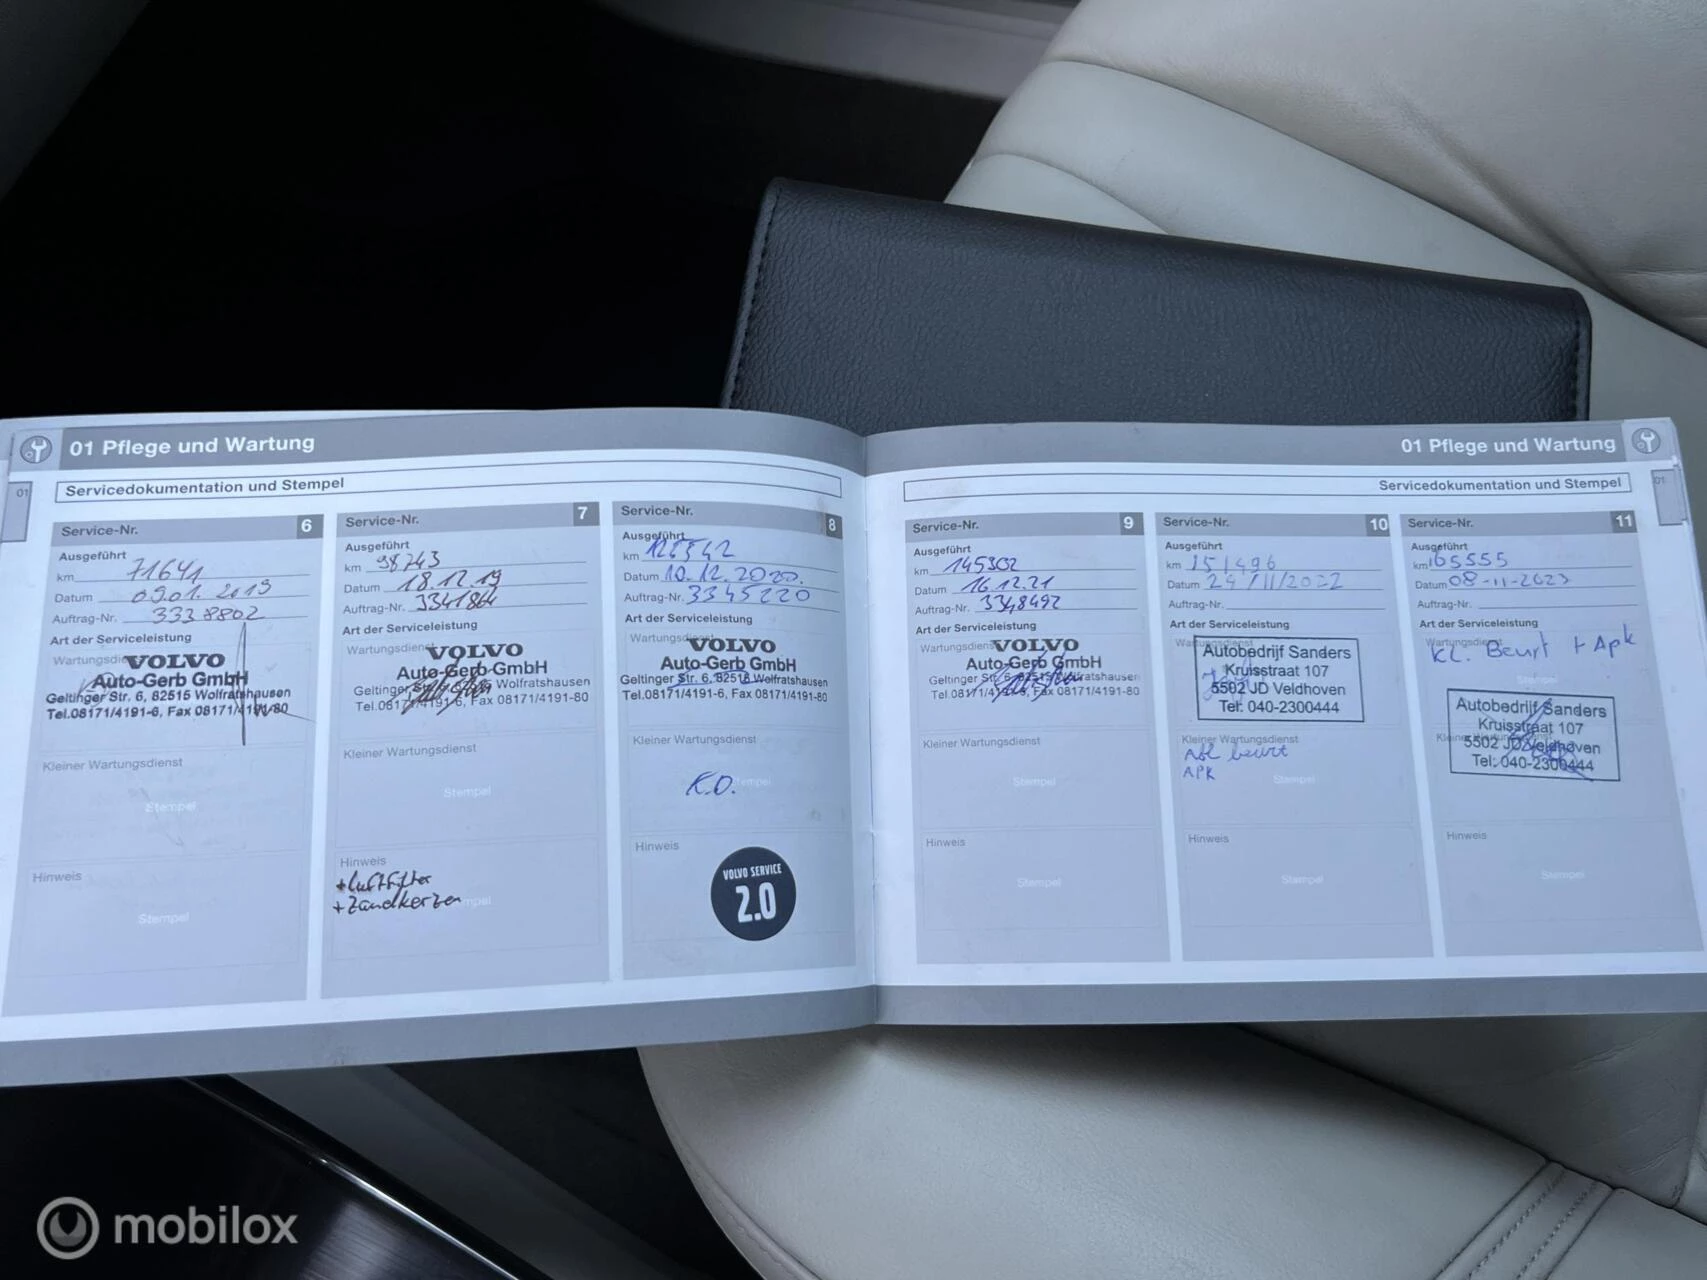 01 Pflege und Wartung
01
Servicedokumentation und Stempel
Service-Nr. 6
Ausgeführt
km 71641
Datum 09.01.2019
Auftrag-Nr. 3338802
Art der Serviceleistung
Wartungsdienst
VOLVO
Auto-Gerb GmbH
Geltinger Str. 6, 82515 Wolfratshausen
Tel.08171/4191-6, Fax 08171/4191-80
Kleiner Wartungsdienst
Stempel
Hinweis
Stempel
Service-Nr. 7
Ausgeführt
km 98743
Datum 18.12.19
Auftrag-Nr. 3341864
Art der Serviceleistung
Wartungsdienst
VOLVO
Auto-Gerb GmbH
Geltinger Str. 6, 82515 Wolfratshausen
Tel.08171/4191-6, Fax 08171/4191-80
Kleiner Wartungsdienst
Stempel
Hinweis
+Luftfilter
+Zündkerzen
Service-Nr. 8
Ausgeführt
km
Datum 10.12.2020.
Auftrag-Nr. 3345220
Art der Serviceleistung
Wartungsdienst
VOLVO
Auto-Gerb GmbH
Geltinger Str. 6, 82515 Wolfratshausen
Tel.08171/4191-6, Fax 08171/4191-80
Kleiner Wartungsdienst
K.D.
Stempel
Hinweis
VOLVO SERVICE
2.0
01 Pflege und Wartung
01
Servicedokumentation und Stempel
Service-Nr. 9
Ausgeführt
km 145302
Datum 16.12.21
Auftrag-Nr. 3348492
Art der Serviceleistung
Wartungsdienst
VOLVO
Auto-Gerb GmbH
Geltinger Str. 6, 82515 Wolfratshausen
Tel.08171/4191-6, Fax 08171/4191-80
Kleiner Wartungsdienst
Stempel
Hinweis
Stempel
Service-Nr. 10
Ausgeführt
km 151496
Datum 24/11/2022
Auftrag-Nr.
Art der Serviceleistung
Wartungsdienst
Autobedrijf Sanders
Kruisstraat 107
5502 JD Veldhoven
Tel: 040-2300444
Kleiner Wartungsdienst
beurt
APK
Stempel
Hinweis
Stempel
Service-Nr. 11
Ausgeführt
km 165555
Datum 08-11-2023
Auftrag-Nr.
Art der Serviceleistung
Wartungsdienst
KL. Beurt + Apk
Stempel
Autobedrijf Sanders
Kruisstraat 107
5502 JD Veldhoven
Tel: 040-2300444
Hinweis
Stempel
mobilox